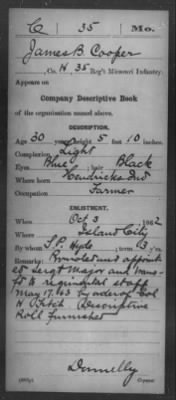 C 35 Mo.
James B Cooper
, Co. H 35 Reg't Missouri Infantry.
Appears on
Company Descriptive Book
of the organization named above.
DESCRIPTION.
Age 30 years; height 5 feet 10 inches.
Complexion Light
Eyes Blue; hair Black
Where born Hendricks Ind
Occupation Farmer
ENLISTMENT.
When Oct 3, 1862
Where Island City
By whom S.P. Hyde; term 3 y'rs.
Remarks: Promoted and appoint
ed Sergt Major and trans-
fd to regimental staff
May 17. 63 by order of Col
Fitch. Descriptive
Roll furnished
Donnelly
Copyist.